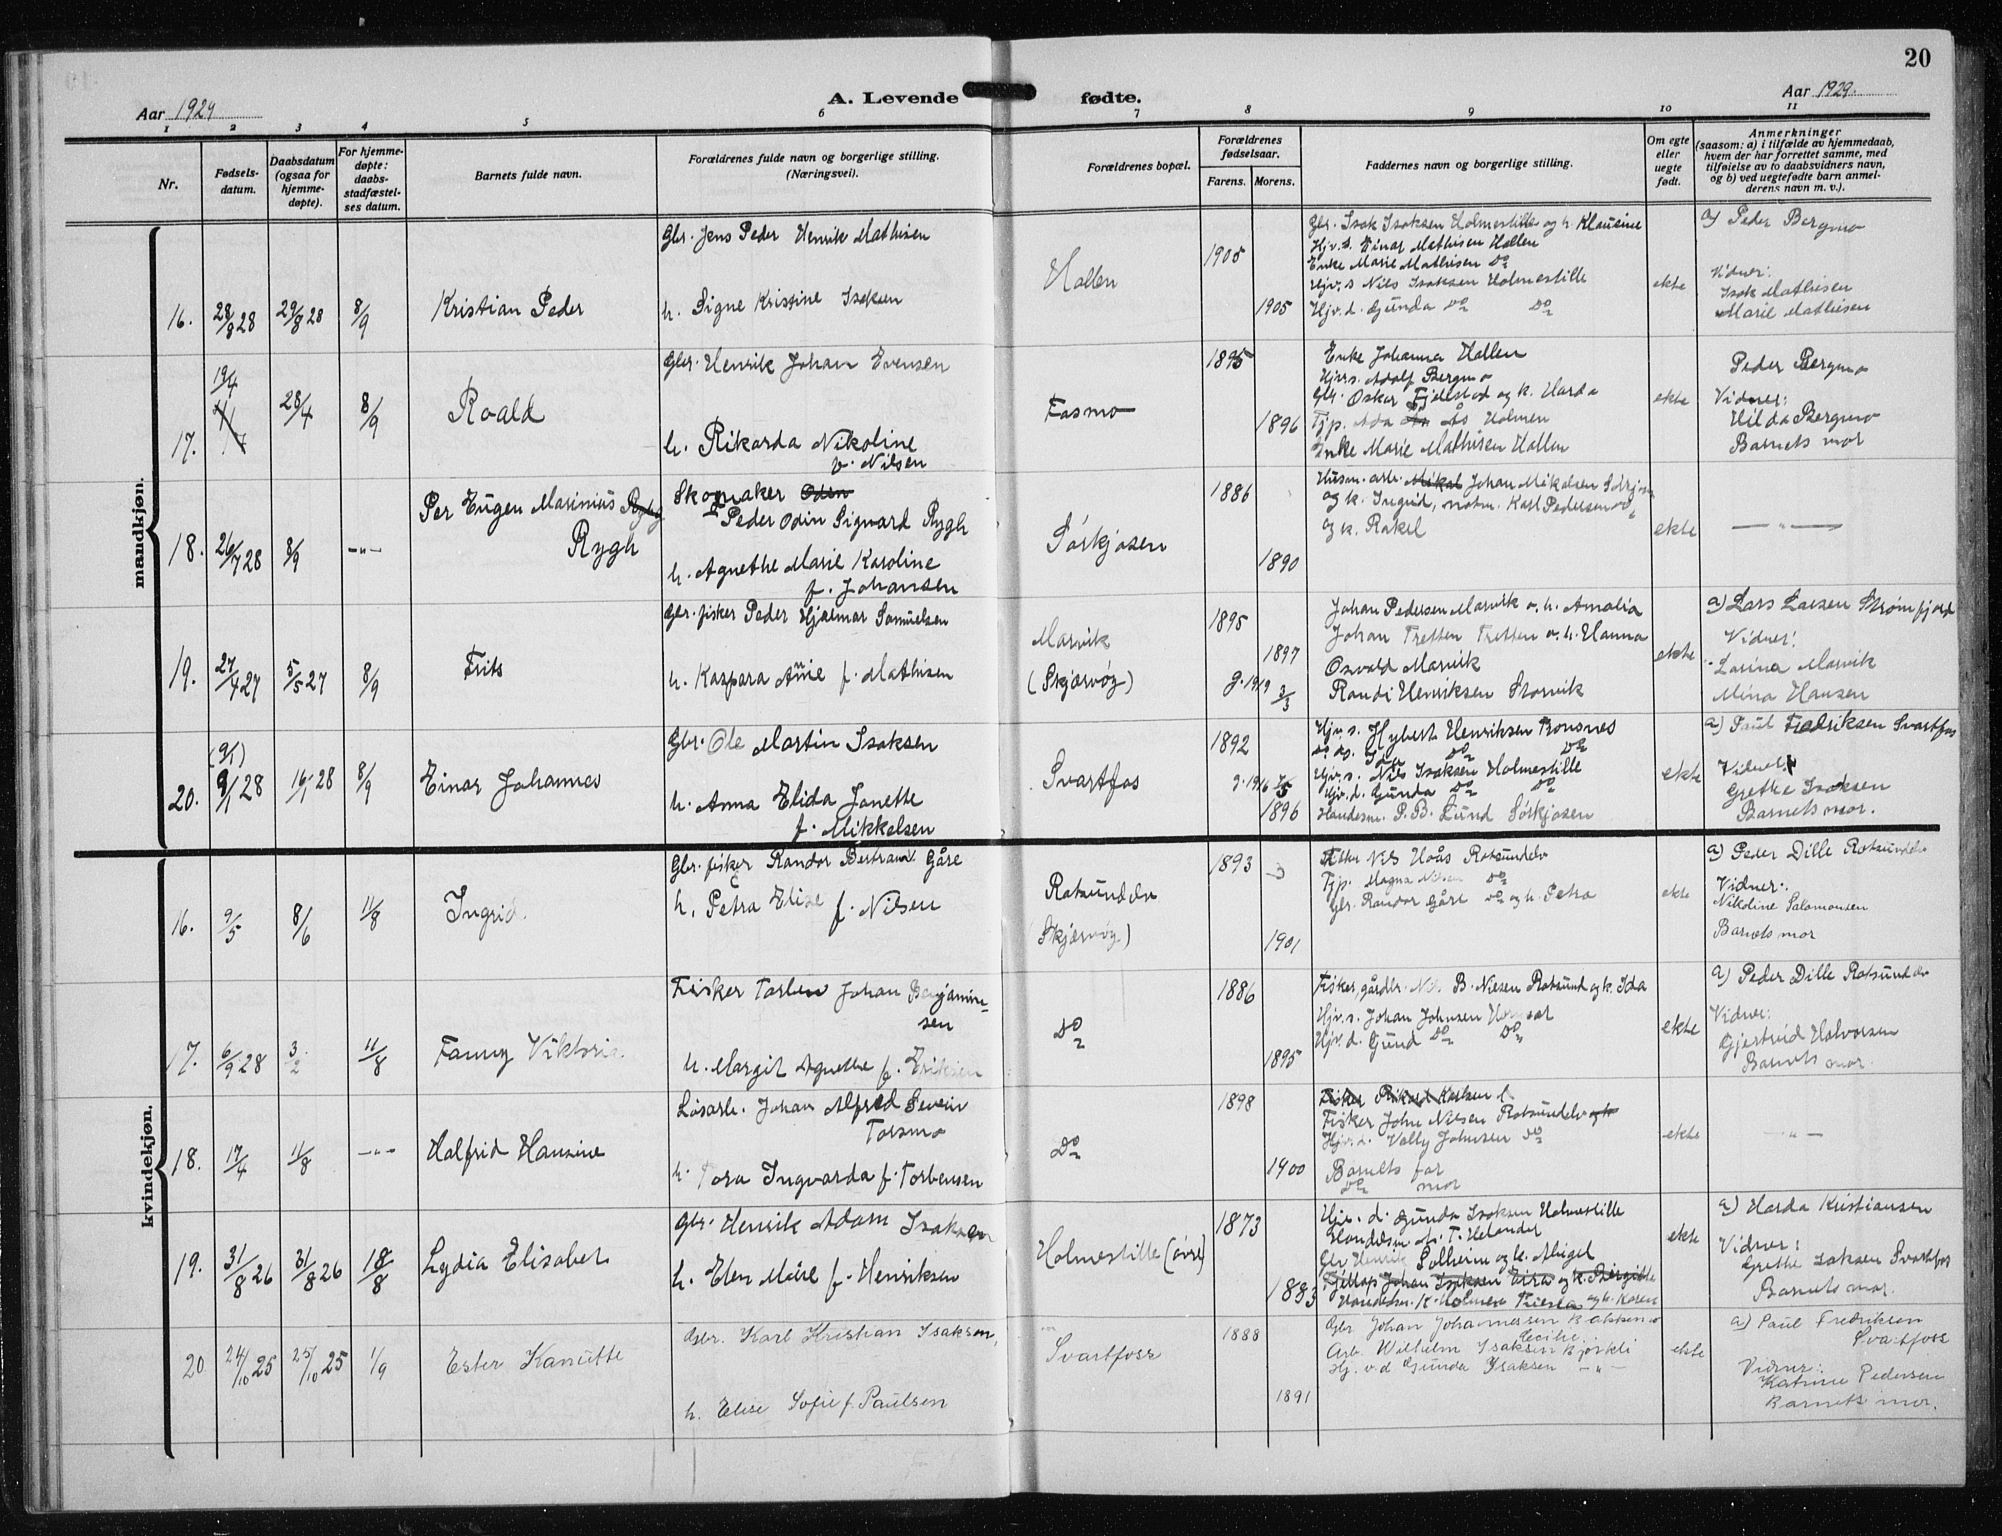 20
Aar 1929
A. Levende fødte.
Aar 1929.
1 2 3 4 5 6 7 8 9 10 11
Nr.
Fødsels-
datum.
Daabsdatum
(ogsaa for
hjemme-
døpte).
For hjemme-
døpte:
daabs-
stadfæstel-
ses datum.
Barnets fulde navn.
Forældrenes fulde navn og borgerlige stilling.
(Næringsvei).
Forældrenes bopæl.
Forældrenes
fødselsaar.
Farens. Morens.
Faddernes navn og borgerlige stilling.
Om egte
eller
uegte
født.
Anmerkninger
(saasom: a) i tilfælde av hjemmedaab,
hvem der har forrettet samme, med
tilføielse av to daabsvidners navn,
og b) ved uegtefødte barn anmel-
derens navn m. v.).
mandkjøn.
16. 28/8 28 29/8 28 8/9
Kristian Peder
Gbr. Jens Peder Henrik Mathisen
h. Signe Kristine Isaksen
Hallen
1905
1905
Gbr. Isak Isaksen Holmestille og h. Klausine
Hjv. s. Einar Mathisen Hallen
Enke Marie Mathisen Do
Hjv. s Nils Isaksen Holmestille
Hjv. d. Gunda Do Do
ekte
a) Peder Bergmo
Vidner:
Isak Mathisen
Marie Mathisen
17. 19/4 28/4 8/9
Roald
Gbr. Henrik Johan Evensen
h. Rikarda Nikoline
v. Nilsen
Fosmo
1895
1896
Enke Johanna Hallen
Hjv. s. Adolf Bergmo
Gbr. Oskar Fjellstad og k. Harda
Tjp. Ada Ås Holmen
Enke Marie Mathisen Hallen
ekte
Peder Bergmo
Vidner:
Hilda Bergmo
Barnets mor
18. 26/7 28 8/9 -"-
Per Eugen Marinius
Rygh
Skomaker Odin
Peder Odin Sigvard Rygh
h. Agnethe Marie Karoline
f. Johansen
Sørkjosen
1886
1890
Johan Mikalsen
og k. Ingrid, Karl Pedersen
og k. Rakel
ekte
-"-
19. 27/4 27 5/5 27 8/9
Frits
Gbr. fisker Peder Hjalmar Samuelsen
h. Kaspara Anne f. Mathisen
Marvik
(Skjærvøy)
1895
1897
g. 1919 3/3
Johan Pedersen Marvik o. h. Amalia
Johan Tretten Tretten o. h. Hanna
Osvald Marvik
Randi Henriksen Storvik
ekte
a) Lars Larsen Strømfjord
Vidner:
Larina Marvik
Mina Hansen
20. (9/1) 9/1 28 16/1 28 8/9
Einar Johannes
Gbr. Ole Martin Isaksen
h. Anna Elida Janette
f. Mikkelsen
Svartfos
1892
g. 1916 7/5
1896
Hjv. s. Hybert Henriksen Tronsnes
Hjv. s. Nils Isaksen Holmestille
Hjv. d. Gunda Do Do
Handesm. P. B. Lund Sørkjosen
ekte
a) Paul Fredriksen Svartfos
Vidner:
Grethe Isaksen
Barnets mor.
kvindekjøn.
16. 9/5 8/6 11/8
Ingrid.
Gbr. fisker Randor Bertram Gåre
h. Petra Elise f. Nilsen
Rotsundelv
Skjærvøy)
1893
1901
Nils Hoås Rotsundelv
Tjp. Magna Nilsen Do
Gbr. Randor Gåre Do og h. Petra
ekte
a) Peder Dille Rotsundelv
Vidner:
Nikoline Salamonsen
Barnets mor
17. 6/9 28 3/2 11/8
Fanny Viktoria
Fisker Torben Johan Benjamin-
sen
h. Margit Agnethe f. Eriksen
Do
1886
1895
Fisker, gårdbr. B. Nilsen Rotsund og k. Ida
Hjv. s. Johan Johnsen
Hjv. d. Gund Do Do
ekte
a) Peder Dille Rotsundelv
Vidner:
Gjertrud Halvorsen
Barnets mor.
18. 17/4 11/8 -"-
Halfrid Hansine
Løsarb. Johan Alfred Severin
Torsmo
h. Tora Ingvarda f. Torbensen
Do
1898
1900
Fisker John Nilsen Rotsundelv
Hjv. d. Valby Johnsen Do
Barnets far
Do mor
ekte
-"-
19. 31/8 26 31/8 26 18/8
Lydia Elisabet
Gbr. Henrik Adam Isaksen
h. Elen Marie f. Henriksen
Holmestille (øvre)
1873
1883
Hjv. d. Gunda Isaksen Holmestille
Handelsm. M. T. Helander
Gbr Henrik Solheim og k. Margit
Handelsm. K. Holmen og h. Karen
ekte
a) Harda Kristiansen
Vidner:
Grethe Isaksen Svartfos
Barnets mor.
20 24/10 25 25/10 25 1/9
Ester Kanutte
Gbr. Karl Kristian Isaksen,
h. Elise Sofie f. Paulsen
Svartfoss
1888
1891
Gbr Johan Johannessen
Cecilie.
Arb. Wilhelm Isaksen Bjørkli
Hj. v. d Gunda Isaksen -"-
ekte
a) Paul Fredriksen
Svartfoss
Vidner:
Katrine Pedersen
Barnets mor.